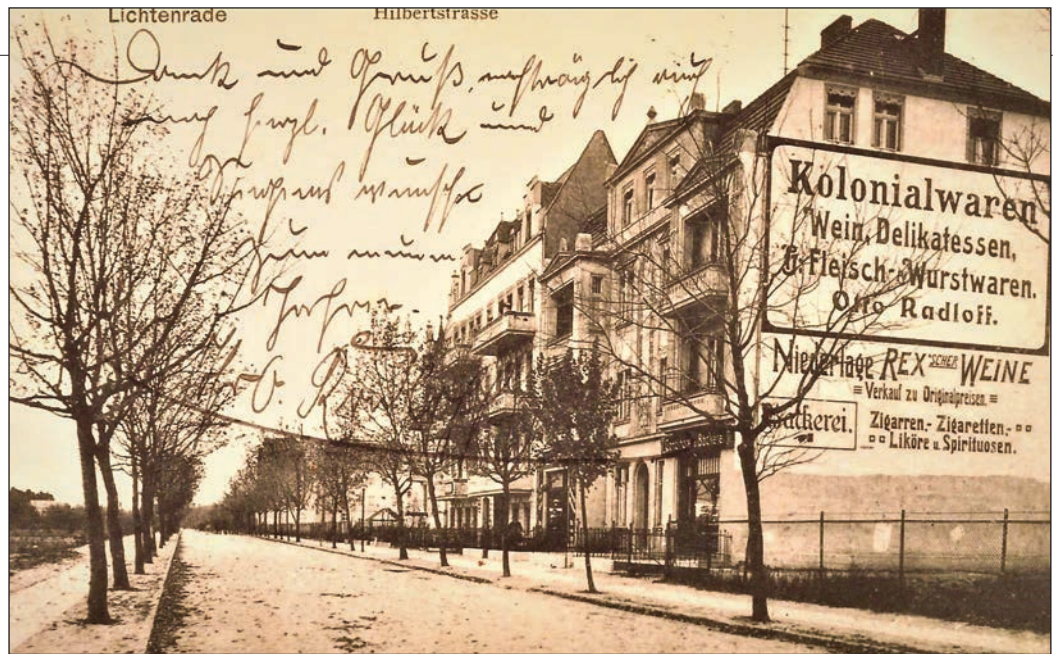 Lichtenrade Hilbertstrasse
Dank und Gruß, nachträglich auch
noch herzl. Glück und
Segens wünsche
zum neuen
Jahre
Kolonialwaren
Wein, Delikatessen,
Fleisch- Wurstwaren.
Otto Radloff.
Niederlage REX'SCHER WEINE
≡ Verkauf zu Originalpreisen. ≡
Bäckerei.
Zigarren.- Zigaretten.-
Liköre u. Spirituosen.